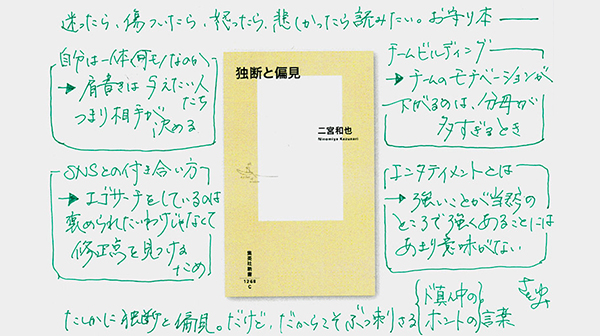 迷ったら、傷ついたら、怒ったら、悲しかったら読みたい。お守り本——
自分は一体何モノなのか
→肩書きは与えたい人たち
つまり相手が決める
SNSとの付き合い方
→エゴサーチをしているのは
褒められたいわけじゃなくて
修正点を見つけるため
独断と偏見
二宮和也
Ninomiya Kazunari
集英社新書
1268
C
チームビルディング
→チームのモチベーションが
下がるのは、分母が
多すぎるとき
エンタテイメントとは
→強いことが当然の
ところで強くあることには
あまり意味がない
たしかに独断と偏見。だけど、だからこそぶっ刺さる
ド真ん中の
ホントの言葉
さとゆみ